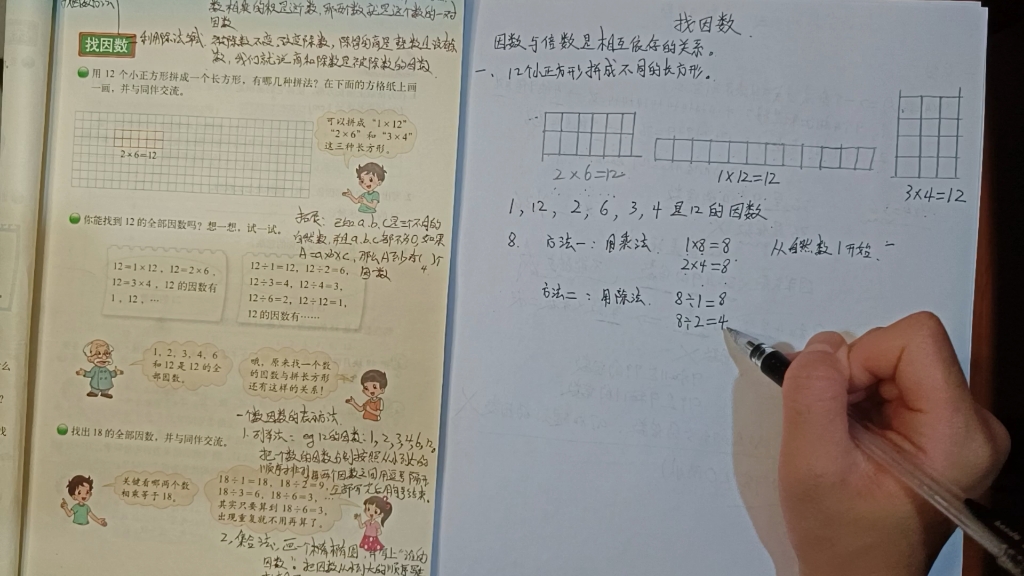 数相乘的积是这数，那两数就是这个数的一对
因数
找因数
利用除法 被除数不变，改变除数，
数，我们就说商和除数是被除数的因数
用 12 个小正方形拼成一个长方形，有哪几种拼法？在下面的方格纸上画
一画，并与同伴交流。
可以拼成“1×12”
“2×6”和“3×4”
这三种长方形。
2×6=12
你能找到 12 的全部因数吗？想一想，试一试。
a、b、c是三个不同的
自然数，并且a、b、c都不为0，如果
A=a×b×c，那么A至少有( )个
因数
12=1×12，12=2×6，
12=3×4，12 的因数有
1，12，…
12÷1=12，12÷2=6，
12÷3=4，12÷4=3，
12÷6=2，12÷12=1，
12 的因数有……
1，2，3，4，6
和 12 是 12 的全
部因数。
哦，原来找一个数
的因数与拼长方形
还有这样的关系！
一个数因数的表示方法
1. 列举法：eg 12的因数：1,2,3,4,6,12。
把一个数的因数 按照从小到大的
顺序排列 每两个因数之间用逗号隔开
全部写完后用句号结束。
找出 18 的全部因数，并与同伴交流。
关键看哪两个数
相乘等于 18。
18÷1=18，18÷2=9，
18÷3=6，18÷6=3，…
其实只要算到 18÷6=3，
出现重复就不用再算了。
2. 集合法：画一个椭圆
因数”，把因数从小到大的顺序写
找因数
因数与倍数是相互依存的关系。
一、12个小正方形拼成不同的长方形。
2×6=12
1×12=12
3×4=12
1，12，2，6，3，4 是12的因数
8. 方法一：用乘法 1×8=8 从自然数1开始.
2×4=8
方法二：用除法 8÷1=8
8÷2=4